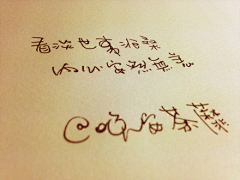 看淡世事沧桑
内心安然无恙
@晚安